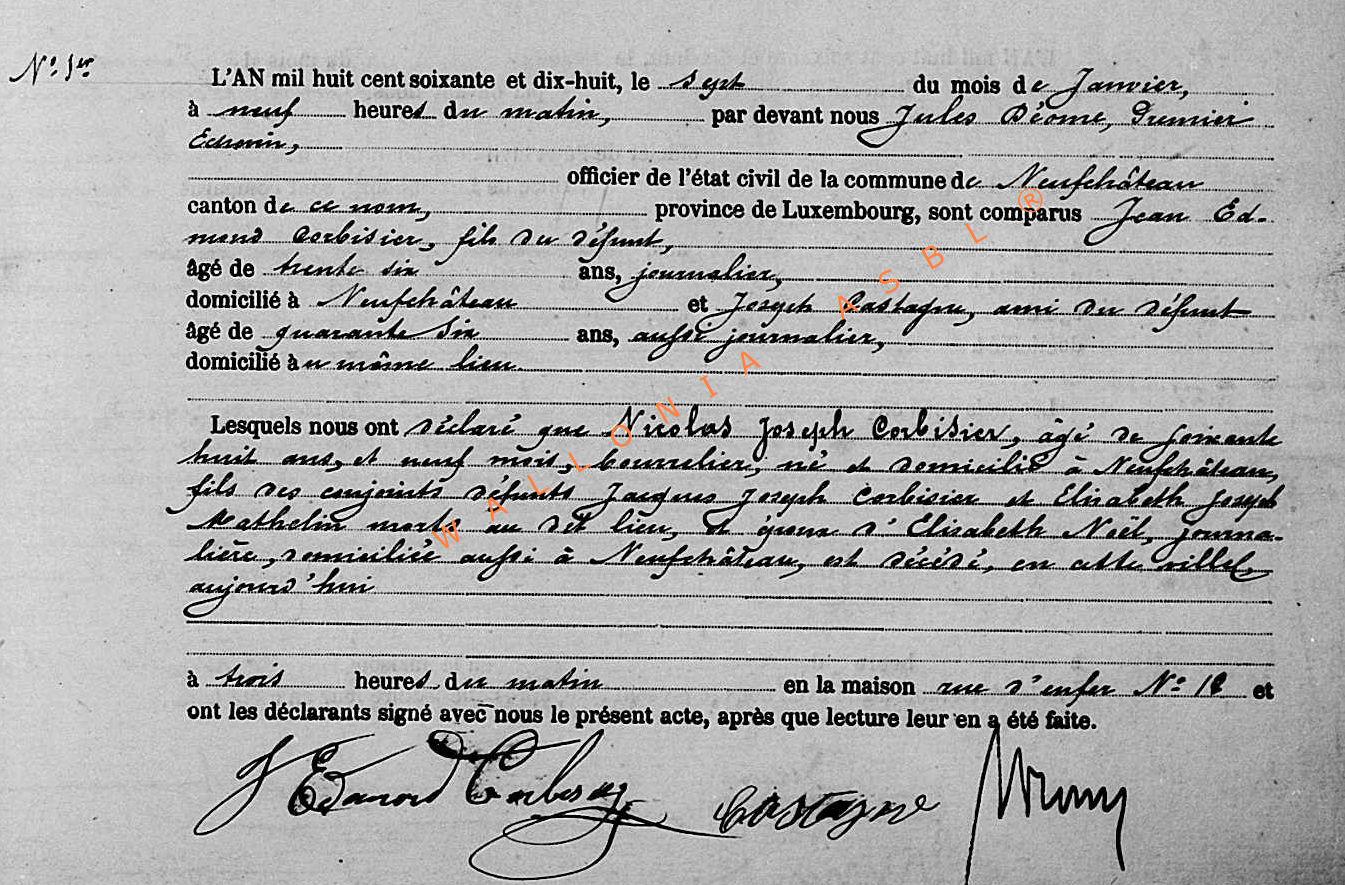 N° 1er
L'AN mil huit cent soixante et dix-huit, le sept du mois de Janvier,
à neuf heures du matin, par devant nous Jules Déome, Premier
Echevin,
officier de l'état civil de la commune de Neufchâteau
canton de ce nom, province de Luxembourg, sont comparus Jean Ed-
mond Corbisier, fils du défunt,
âgé de trente six ans, journalier,
domicilié à Neufchâteau et Joseph Castagne, ami du défunt
âgé de quarante six ans, aussi journalier,
domicilié au même lieu.
Lesquels nous ont déclaré que Nicolas Joseph Corbisier, âgé de soixante
huit ans, et neuf mois, bourrelier, né et domicilié à Neufchâteau,
fils des conjoints défunts Jacques Joseph Corbisier et Elisabeth Joseph
Mathelin morts au dit lieu, et époux d'Elisabeth Noël, journa-
lière, domiciliée aussi à Neufchâteau, est décédé, en cette ville,
aujourd'hui
à trois heures du matin en la maison rue d'enfer N° 18 et
ont les déclarants signé avec nous le présent acte, après que lecture leur en a été faite.
J Edmond Castagne
WALLONIA ASBL ®